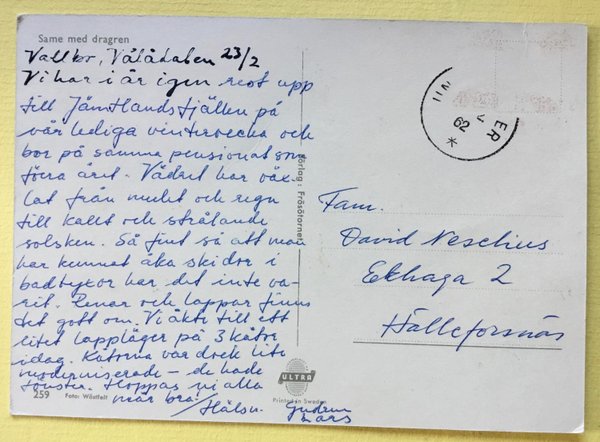 Same med dragren
Vallbo, Vålådalen 23/2
Vi har i år igen rest upp
till Jämtlandsfjällen på
vår lediga vintervecka och
bor på samma pensionat som
förra året. Vädret har väx-
lat från mulet och regn
till kallt och strålande
solsken. Så fint så att man
har kunnat åka skidor i
badbyxor har det inte va-
rit. Renar och lappar finns
det gott om. Vi åkte till ett
litet lappläger på 3 kåtor
idag. Kåtorna var dock lite
moderniserade – de hade
fönster. Hoppas ni alla
mår bra!
/Hälsn. Gudrun
Lars
259 Foto: Wästfelt
Förlag: Frösötornet
ULTRA
Printed in Sweden
62
Fam.
David Neschius
Ekhaga 2
Hälleforsnäs